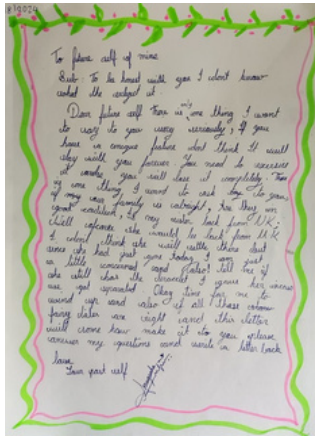 To future self of mine
Sub- To be honest with you I don't know
what the subject is.
Dear future self There is only one thing I want
to say to you very seriously, if you
have a unique future don't think It will
stay with you forever. You need to
it or else you will lose it completely. Then
if one thing I want to ask day to you,
if my our family is alright, are they in
good condition, is my sister back from U.K.
Well ofcourse she would be back from U.K
I don't think she will settle there but
since she had just gone today I am just
a little concerned and also! tell me if
she still has the I gave her
we got separated Okay time for me to
wind up and also if all those
fairy tales are right and this letter
will some how make it to you please
answer my questions and write a letter back
love
Your past self